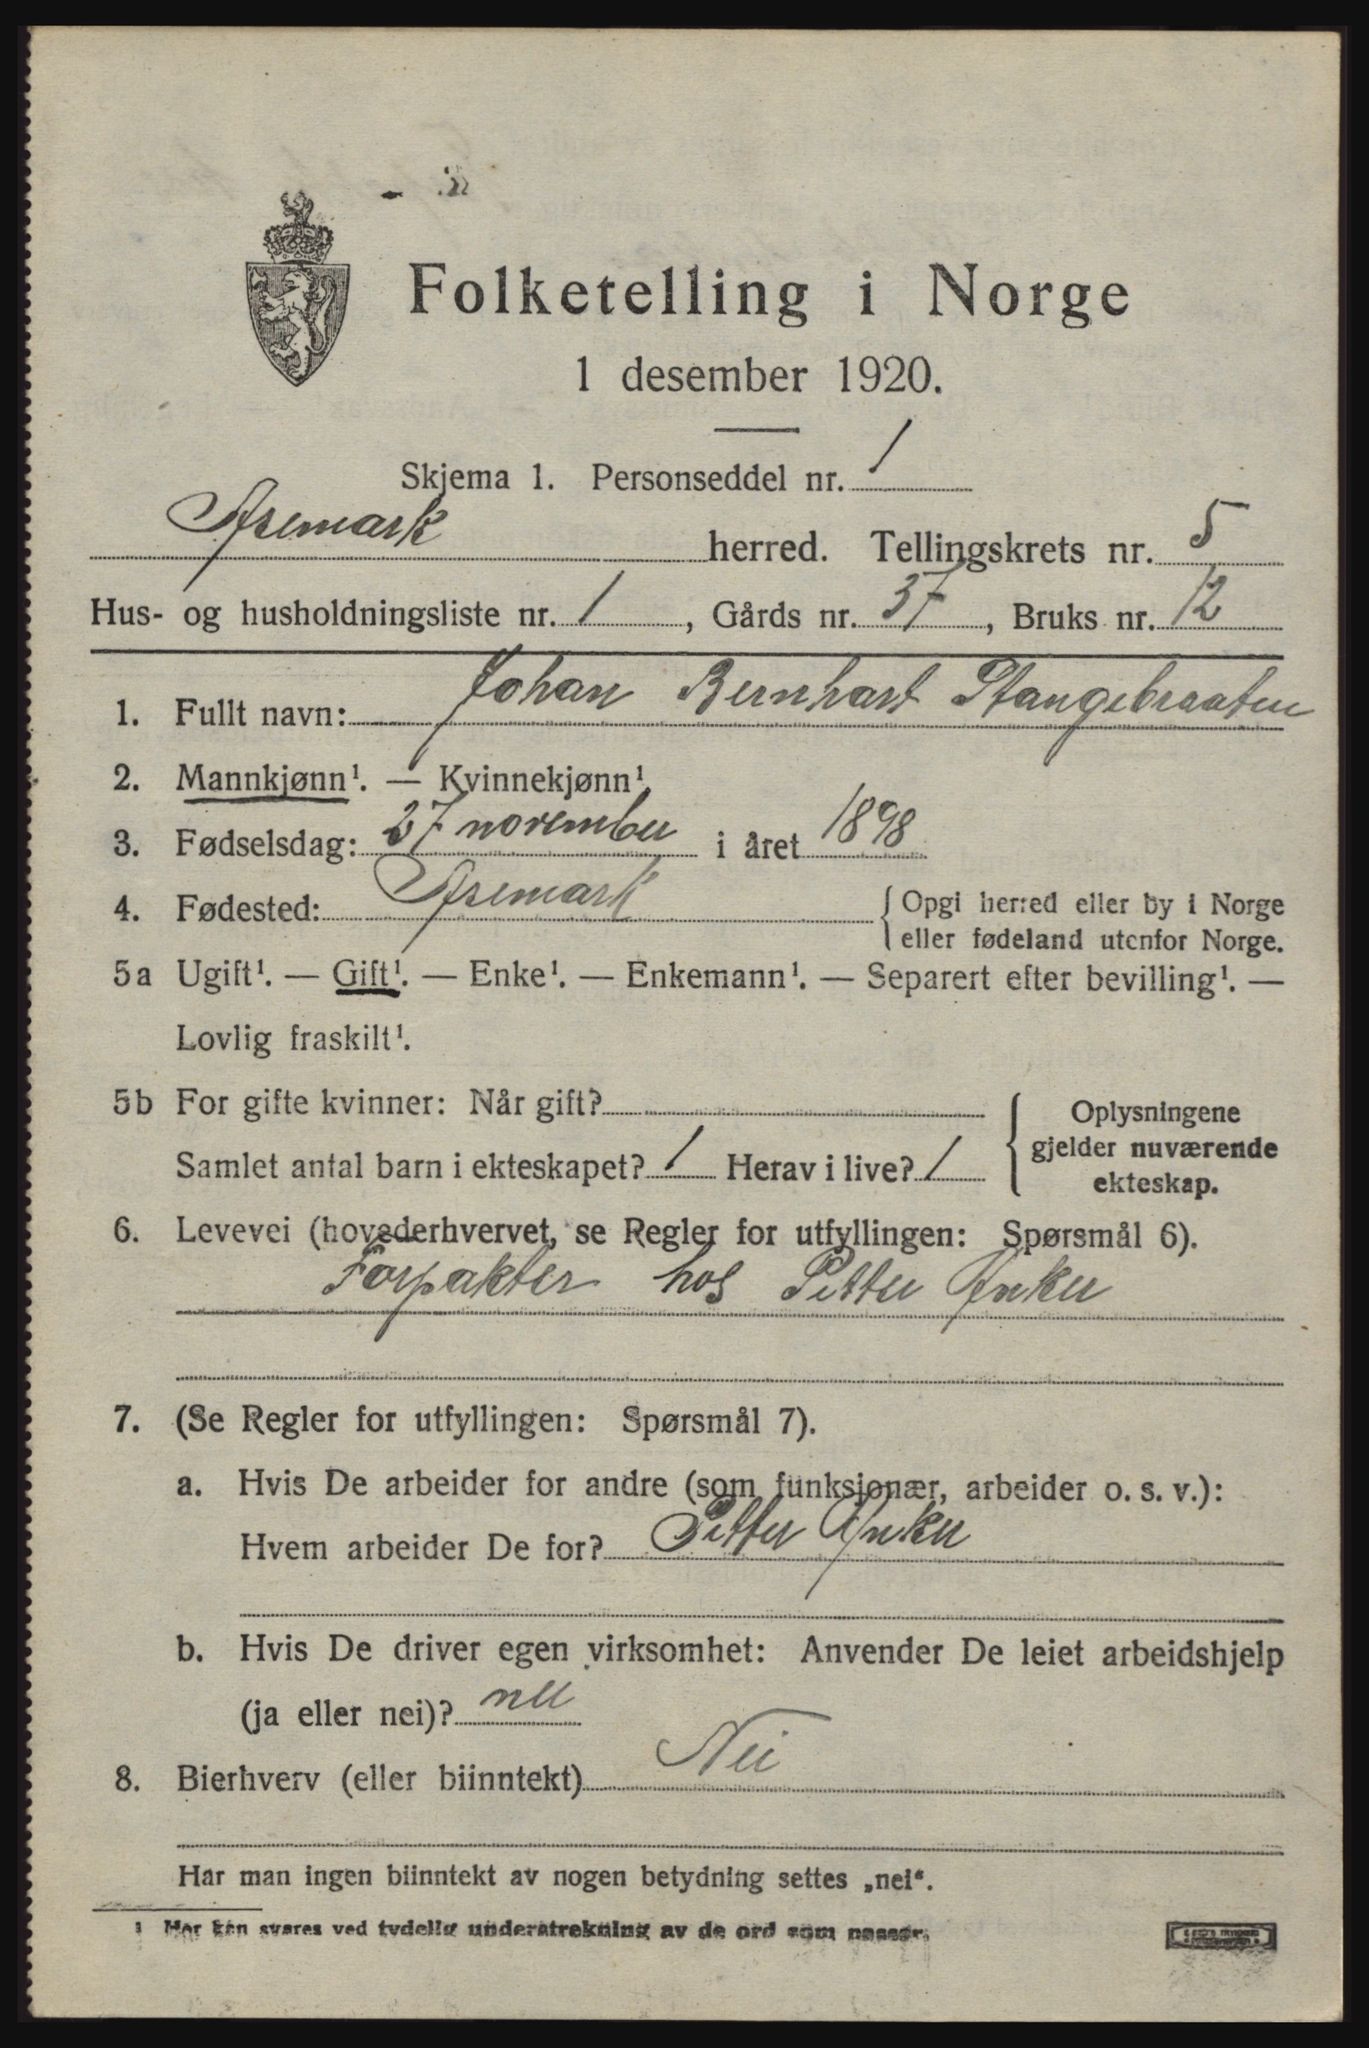 Folketelling i Norge
1 desember 1920.
Skjema 1. Personseddel nr. 1
Aremark herred. Tellingskrets nr. 5
Hus- og husholdningsliste nr. 1, Gårds nr. 37, Bruks nr. 12
1. Fullt navn: Johan Bernhart Stangebraaten
2. Mannkjønn¹. — Kvinnekjønn¹.
3. Fødselsdag: 27 november i året 1898
4. Fødested: Aremark { Opgi herred eller by i Norge
eller fødeland utenfor Norge.
5a Ugift¹. — Gift¹. — Enke¹. — Enkemann¹. — Separert efter bevilling¹. —
Lovlig fraskilt¹.
5b For gifte kvinner: Når gift? { Oplysningene
gjelder nuværende
ekteskap.
Samlet antal barn i ekteskapet? 1 Herav i live? 1
6. Levevei (hovederhvervet, se Regler for utfyllingen: Spørsmål 6).
Forpakter hos Petter Anker
7. (Se Regler for utfyllingen: Spørsmål 7).
a. Hvis De arbeider for andre (som funksjonær, arbeider o. s. v.):
Hvem arbeider De for? Petter Anker
b. Hvis De driver egen virksomhet: Anvender De leiet arbeidshjelp
(ja eller nei)? nei
8. Bierhverv (eller biinntekt) Nei
Har man ingen biinntekt av nogen betydning settes „nei“.
¹ Her kan svares ved tydelig understrekning av de ord som passer.